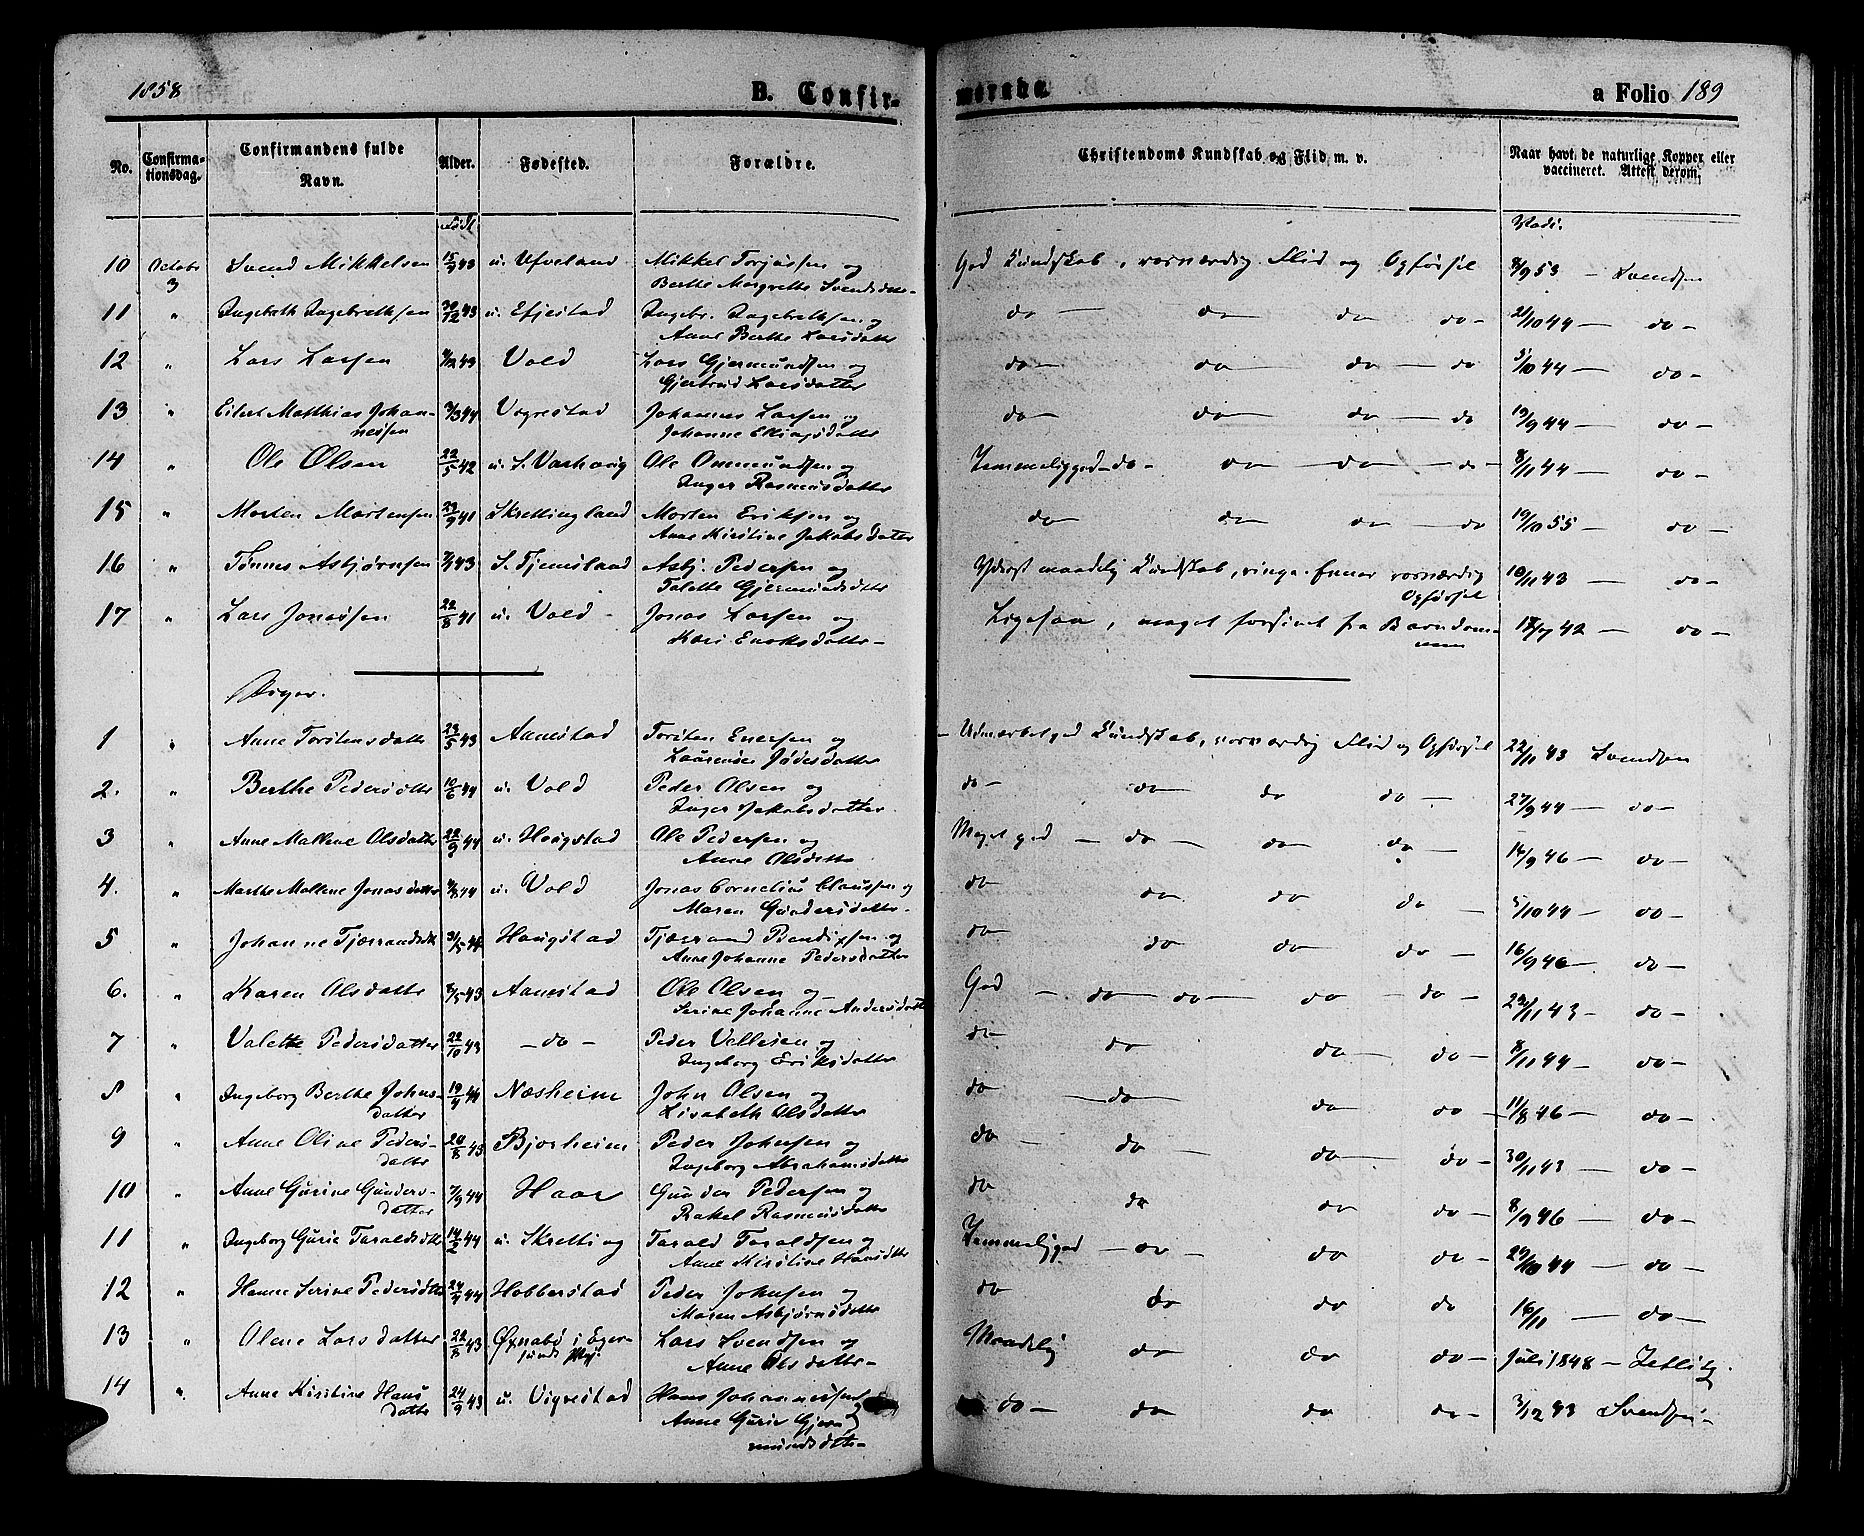 1858 B. Confir- merede. a Folio 189
No. Confirmationsdag. Confirmandens fulde Navn. Alder. Fødested. Forældre. Christendoms Kundskab og Flid m. v. Naar havt de naturlige Kopper eller vaccineret. Attest derom.
Født Vacc.
10 Octobr 3 Svend Mikkelsen 15/9 43 u. Ufveland Mikkel Torjussen og God Kundskab, rosværdig Flid og Opførsel 8/9 53 – Svendsen
Berthe Margrethe Svendsdatter
11 " Ingebreth Ingebrethsen 30/12 43 u. Efjestad Ingebr. Ingebrethsen og do – do do do – 21/10 44 – do –
Anne Berthe Larsdatter
12 " Lars Larsen Vold Lars Gjermundsen og do – do do – do 5/10 44 – do –
Gjertrud Larsdatter
13 " Eilert Matthias Johan- 3/3 44 Vigrestad Johannes Larsen og do – do do – do 19/9 44 – do –
nessen Johanne Ellingsdatter
14 " Ole Olsen 22/5 42 u. S. Varhoug Ole Ommundsen og Temmelig god – do – do – do – do – 8/11 44 – do
Inger Rasmusdatter
15 " Morten Mortensen 23/9 41 Skrettingland Morten Eriksen og do do do – do 19/10 55 – do –
Anne Kirstine Jakobsdatter
16 " Tønnes Asbjørnsen S. Tjemsland Asbj. Pedersen og Yderst maadelig Kundskab, ringe Evner rosværdig 10/11 43 – do –
Talette Gjermundsdatter Opførsel
17 " Lars Jonassen 22/8 41 u. Vold – Jonas Larsen og Ligesaa, meget forsømt fra Barndom- 42 – do –
Kari Enoksdatter – men
Piger.
1 " Anne Torstensdatter 23/5 43 Aanestad Torsten Enersen og Udmærket god Kundskab, rosværdig Flid og Opførsel 22/11 43 Svendsen
Laurense Jødesdatter
2. " Berthe Pedersdatter 10/6 44 u. Vold Peder Olsen og do – do do do – 27/9 44 – do –
Inger Jakobsdatter
3 " Anne Mallene Olsdatter 22/9 44 u. Haugstad Ole Pedersen og Meget god – do – do do – 14/9 46 – do –
Anne Olsdatter
4. " Marthe Mallene Jonasdatter u. Vold Jonas Cornelius Claussen og do do do do – 5/10 44 – do –
Maren Gundersdatter
5 " Johanne Tjærrandsdtr 31/5 44 Haugstad Tjærrand Bendixsen og do do do do – 16/9 46 – do –
Anne Johanne Pedersdatter
6. " Karen Olsdatter 8/5 43 Aanestad Ole Olsen og God – do – do – do – do – 23/11 43 – do –
Serine Johanne Andersdatter
7 " Valette Pedersdatter 22/10 43 – do – Peder Vellesen og do do do – do – 8/11 44 – do –
Ingeborg Eriksdatter
8 " Ingeborg Berthe Johns- 19/4 44 Næsheim John Olsen og do – do – do do – 11/8 46 – do –
datter Lisabeth Olsdatter
9 " Anne Oline Peders- 20/8 43 Bjorheim Peder Johnsen og do – do – do – do – 30/11 43 – do –
datter Ingeborg Abrahamsdatter
10 " Anne Gurine Gunders- 7/9 44 Haar Gunder Pedersen og do do do do – 8/9 46 – do –
datter Rakel Rasmusdatter
11 " Ingeborg Gurie Taraldsdtr 14/2 44 u. Skretting Tarald Taraldsen og Temmelig god – do – do do – 29/10 44 – do –
Anne Kirstine Hansdtr
12 " Hanne Serine Pedersdtr 24/4 44 Hobberstad Peder Johnsen og do do do do 16/11 – do –
Maren Asbjørnsdatter
13 " Olene Larsdatter 22/8 43 Øxnabø i Eger- Lars Svendsen og Maadelig do do do – Juli 1848 – Zetlitz.
sunds Anne Olsdatter –
14 " Anne Kirstine Hans 24/9 43 u. Vigrestad Hans Johannessen do – do do do – 3/12 43 Svendsen –
datter Anne Gurie Gjer-
mundsdtr –